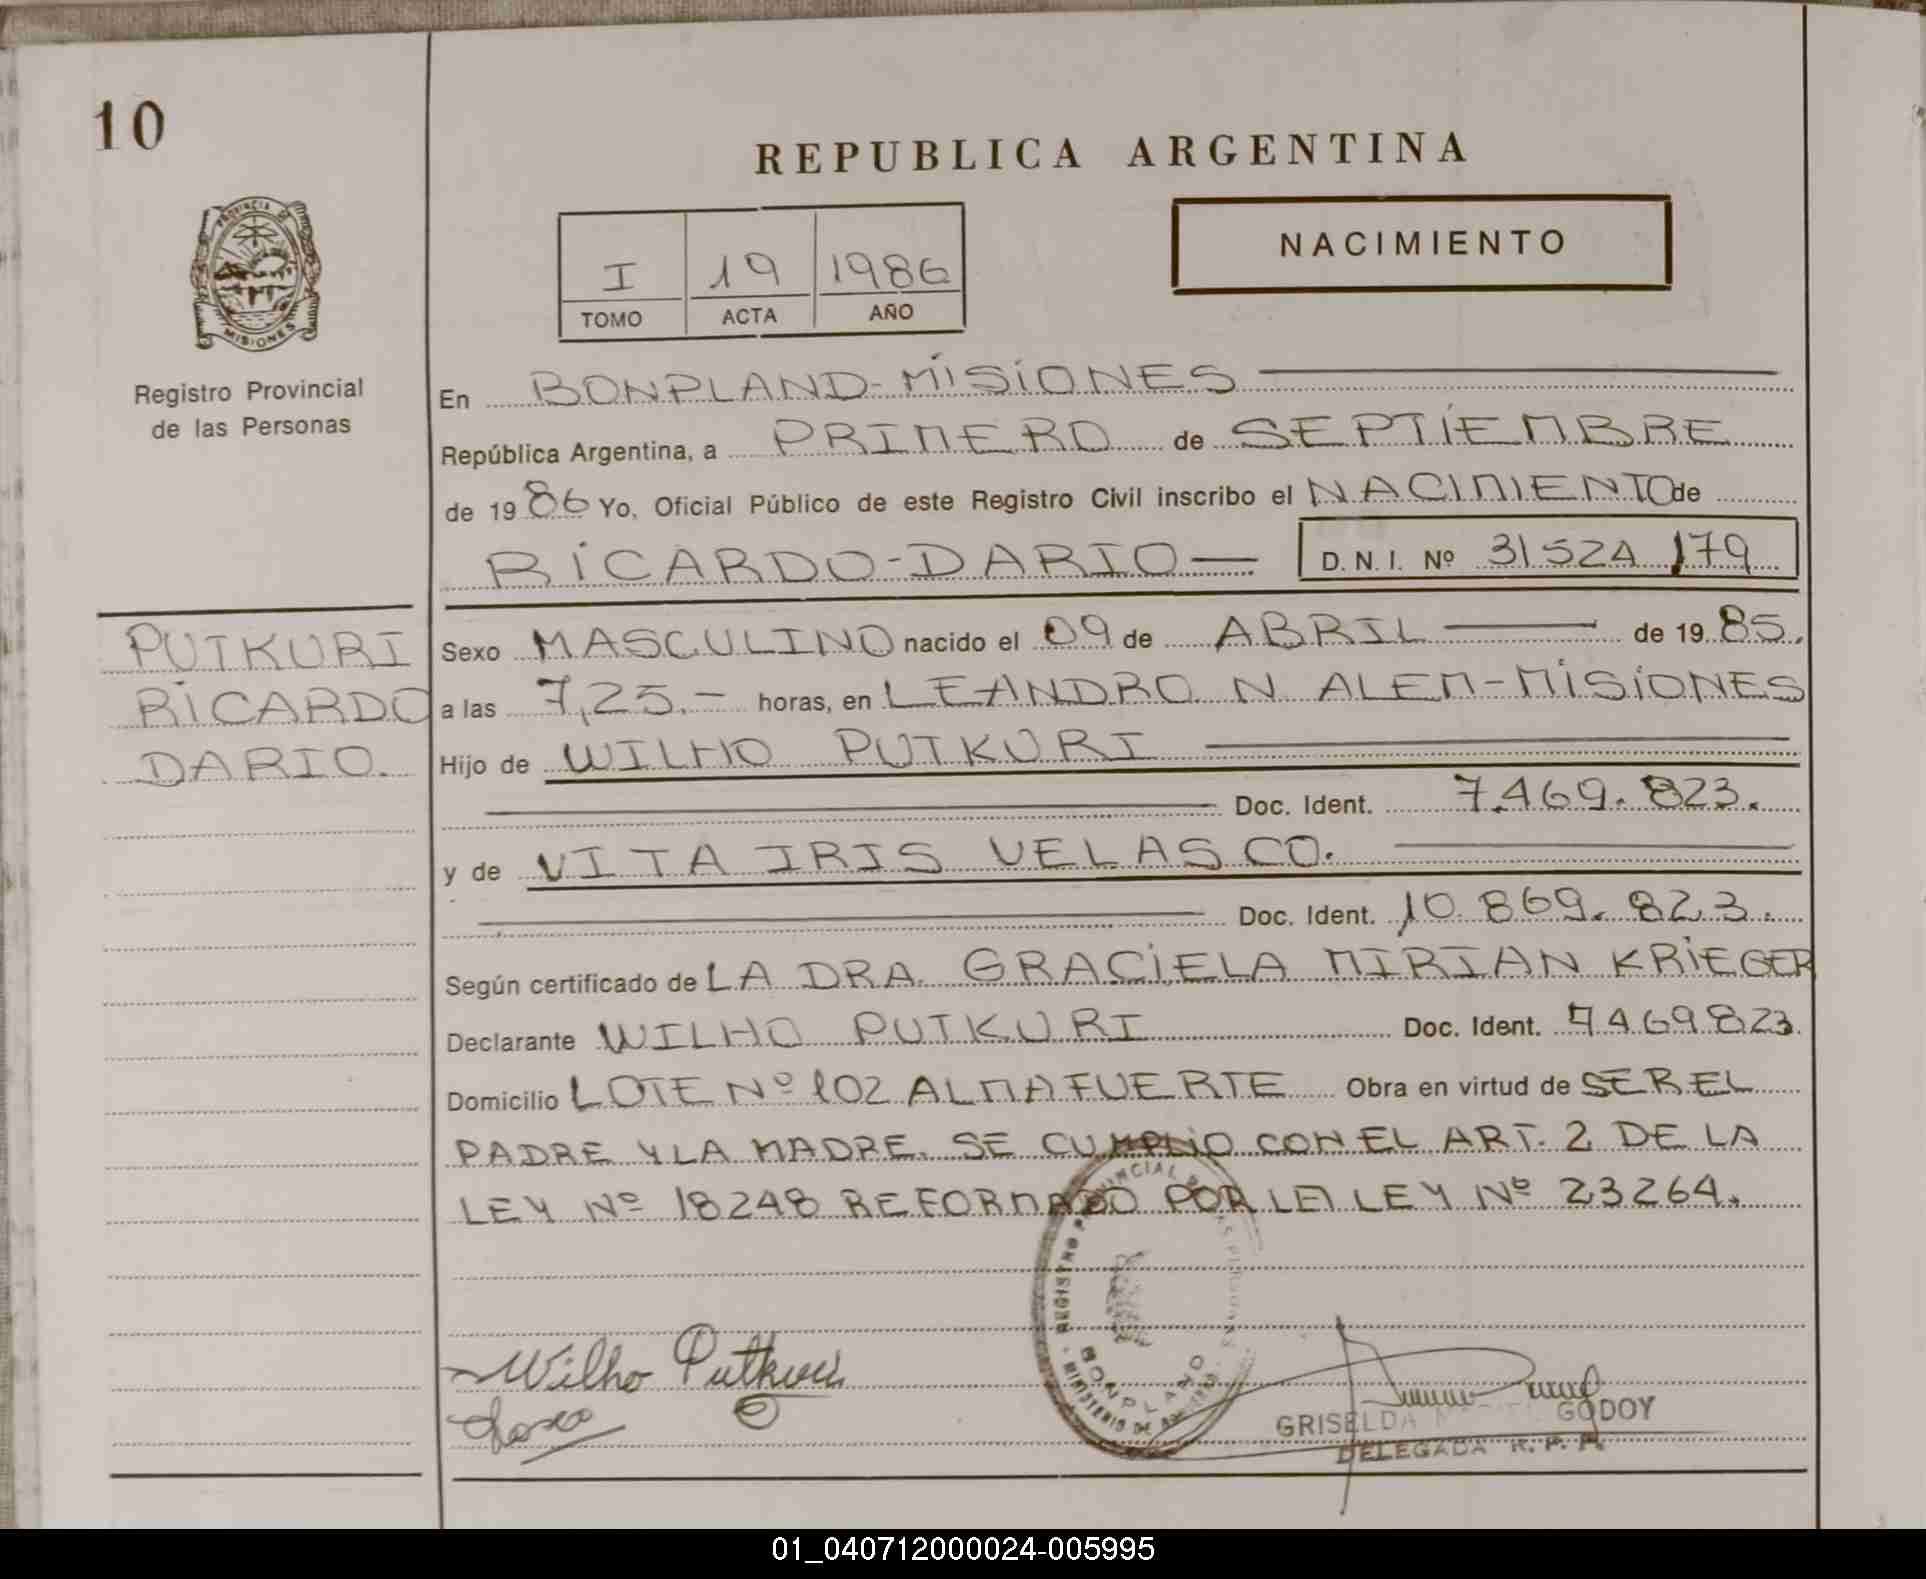 10
REPUBLICA ARGENTINA
PROVINCIA DE
MISIONES
Registro Provincial
de las Personas
I 19 1986
TOMO ACTA AÑO
NACIMIENTO
En BONPLAND-MISIONES
República Argentina, a PRIMERO de SEPTIEMBRE
de 1986 Yo, Oficial Público de este Registro Civil inscribo el NACIMIENTO de
RICARDO-DARIO— D.N.I. Nº 31524179
PUTKURI
RICARDO
DARIO.
Sexo MASCULINO nacido el 09 de ABRIL de 1985.
a las 7,25.- horas, en LEANDRO N ALEM-MISIONES
Hijo de WILHO PUTKURI
Doc. Ident. 7.469.823.
y de VITA IRIS VELASCO.
Doc. Ident. 10.869.823.
Según certificado de LA DRA. GRACIELA MIRIAN KRIEGER
Declarante WILHO PUTKURI Doc. Ident. 7469823.
Domicilio LOTE Nº 102 ALMAFUERTE Obra en virtud de SER EL
PADRE Y LA MADRE. SE CUMPLIO CON EL ART. 2 DE LA
LEY Nº 18248 REFORMADO POR LA LEY Nº 23264.
REGISTRO PROVINCIAL DE LAS PERSONAS
BONPLAND
MINISTERIO DE
Wilho Putkuri
GRISELDA GODOY
DELEGADA R. P. P.
01_040712000024-005995